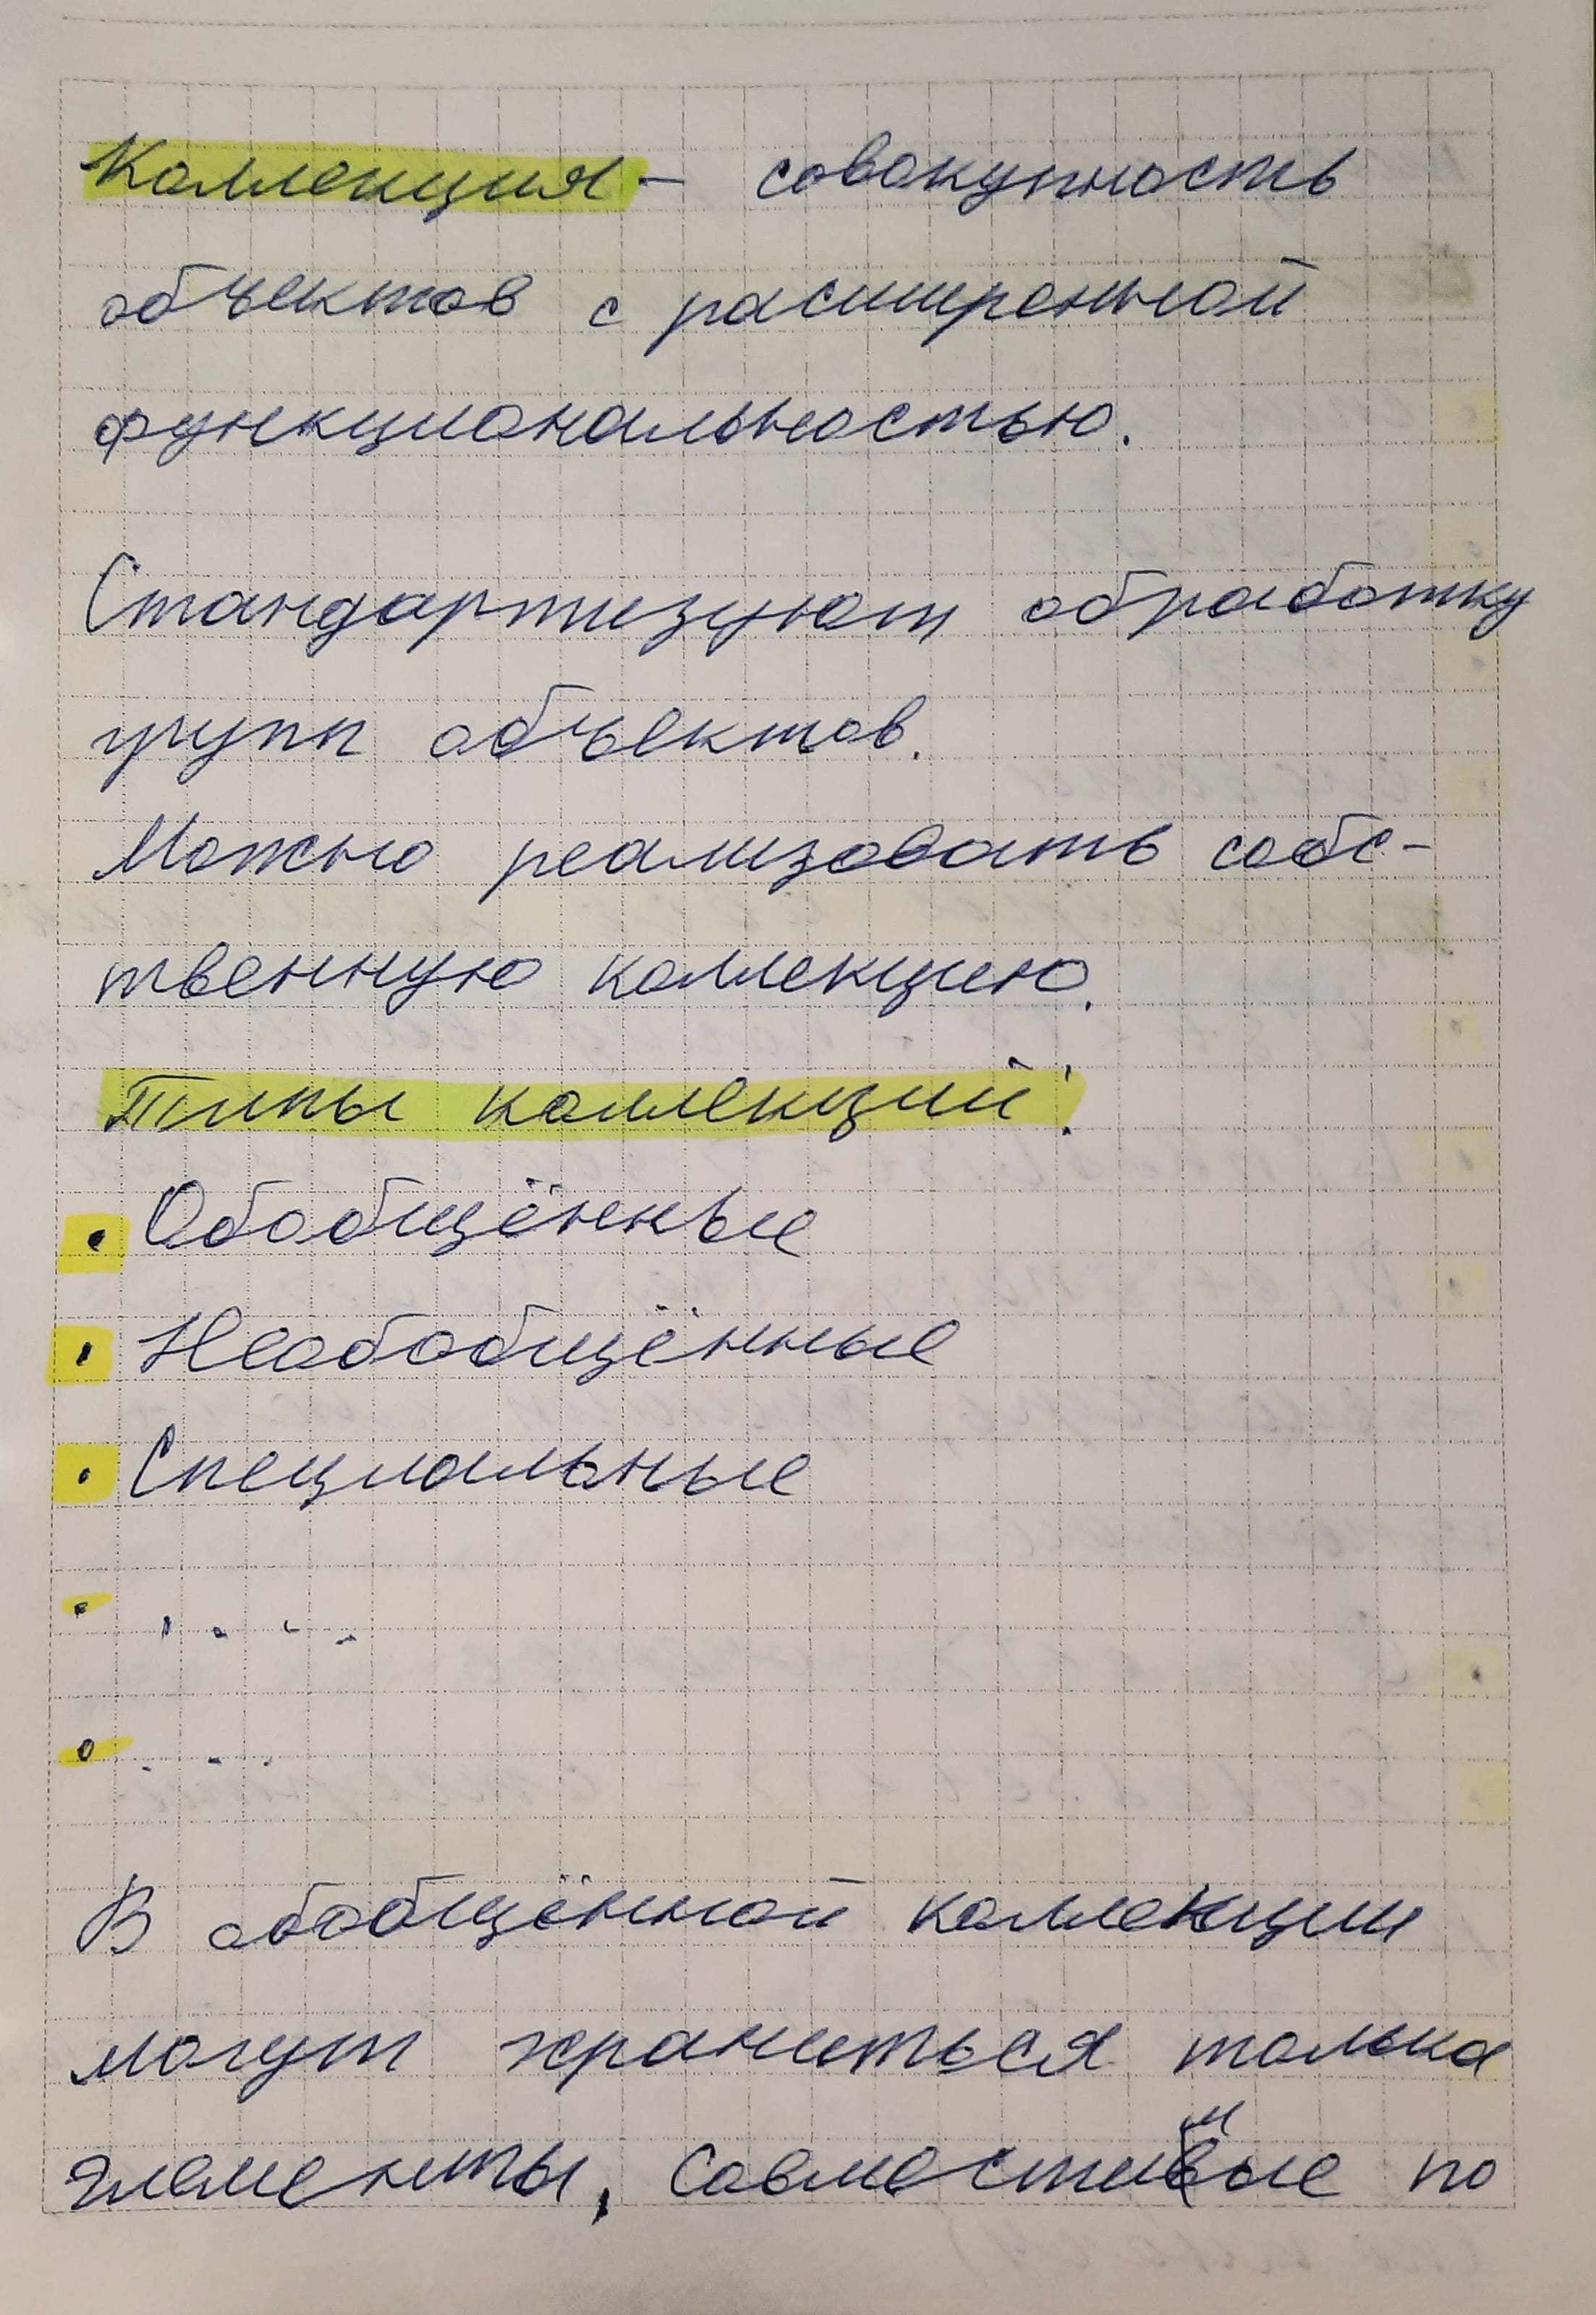 Коллекция - совокупность
объектов с расширенной
функциональностью.
Стандартизуют обработку
групп объектов.
Можно реализовать собс-
твенную коллекцию.
Типы коллекций:
• Обобщённые
• Необобщённые
• Специальные
• . . . .
• . . .
В обобщённой коллекции
могут храниться только
элементы, совместимые по